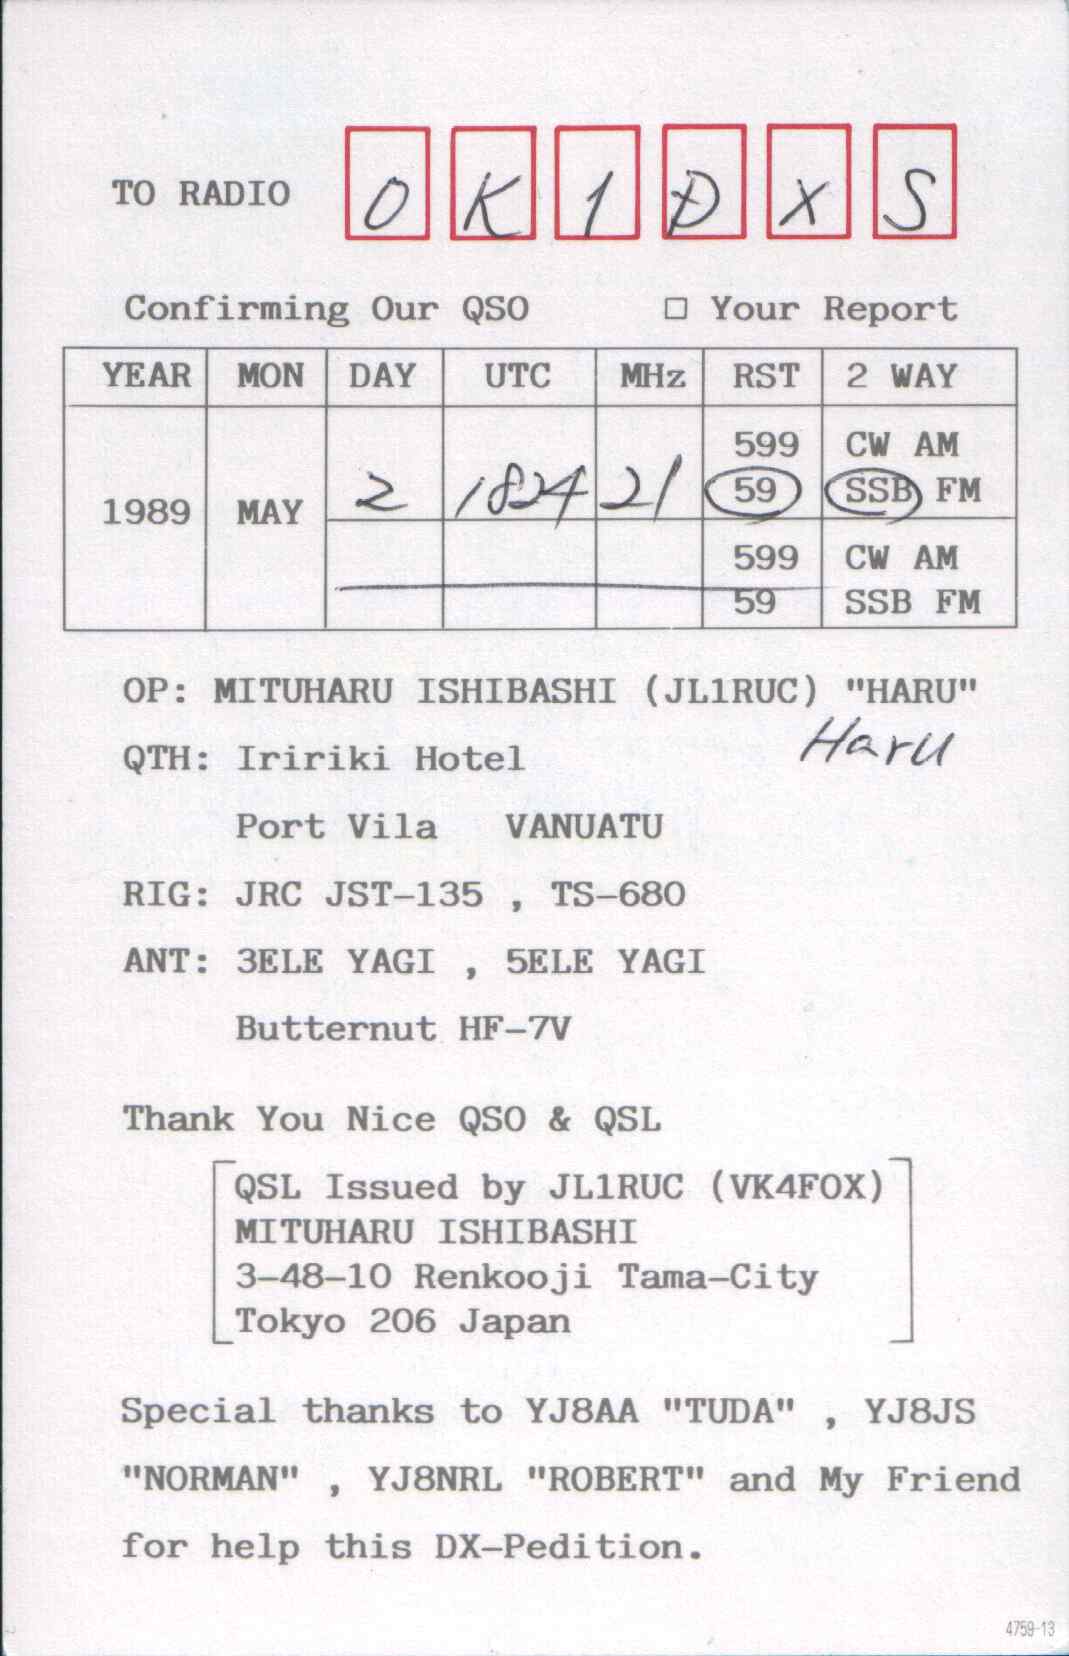 TO RADIO OK1DXS
Confirming Our QSO □ Your Report
YEAR MON DAY UTC MHz RST 2 WAY
599 CW AM
1989 MAY 2 1824 21 59 SSB FM
599 CW AM
59 SSB FM
OP: MITUHARU ISHIBASHI (JL1RUC) "HARU"
Haru
QTH: Iririki Hotel
Port Vila VANUATU
RIG: JRC JST-135 , TS-680
ANT: 3ELE YAGI , 5ELE YAGI
Butternut HF-7V
Thank You Nice QSO & QSL
QSL Issued by JL1RUC (VK4FOX)
MITUHARU ISHIBASHI
3-48-10 Renkooji Tama-City
Tokyo 206 Japan
Special thanks to YJ8AA "TUDA" , YJ8JS
"NORMAN" , YJ8NRL "ROBERT" and My Friend
for help this DX-Pedition.
4759-13